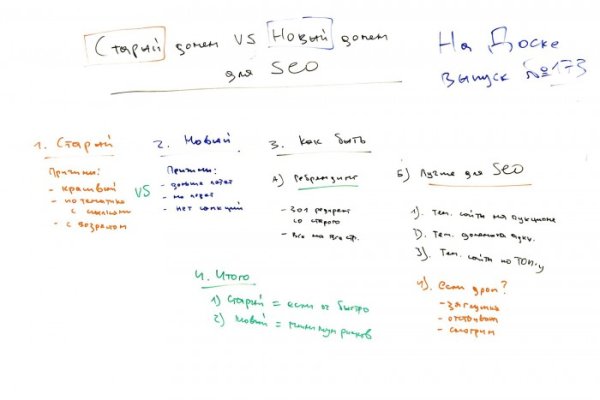 Старый домен VS Новый домен
для SEO
На Доске
выпуск №173
1. Старый
Причины:
- красивый
- по тематике
с ссылками
- с возрастом
VS
2. Новый
Причины:
- дольше
- нет санкций
3. Как быть
А) Ребрендинг
- 301 редирект
со старого
- Все на все стр.
Б) Лучше для SEO
1). Тем. сайты на аукционе
2). Тем. домены аукц.
3). Тем. сайты по ТОП-у
4). если дроп?
- загнулись
- отстаивать
- смотрим
4. Итого
1) Старый = если ок быстро
2) Новый = минимум рисков